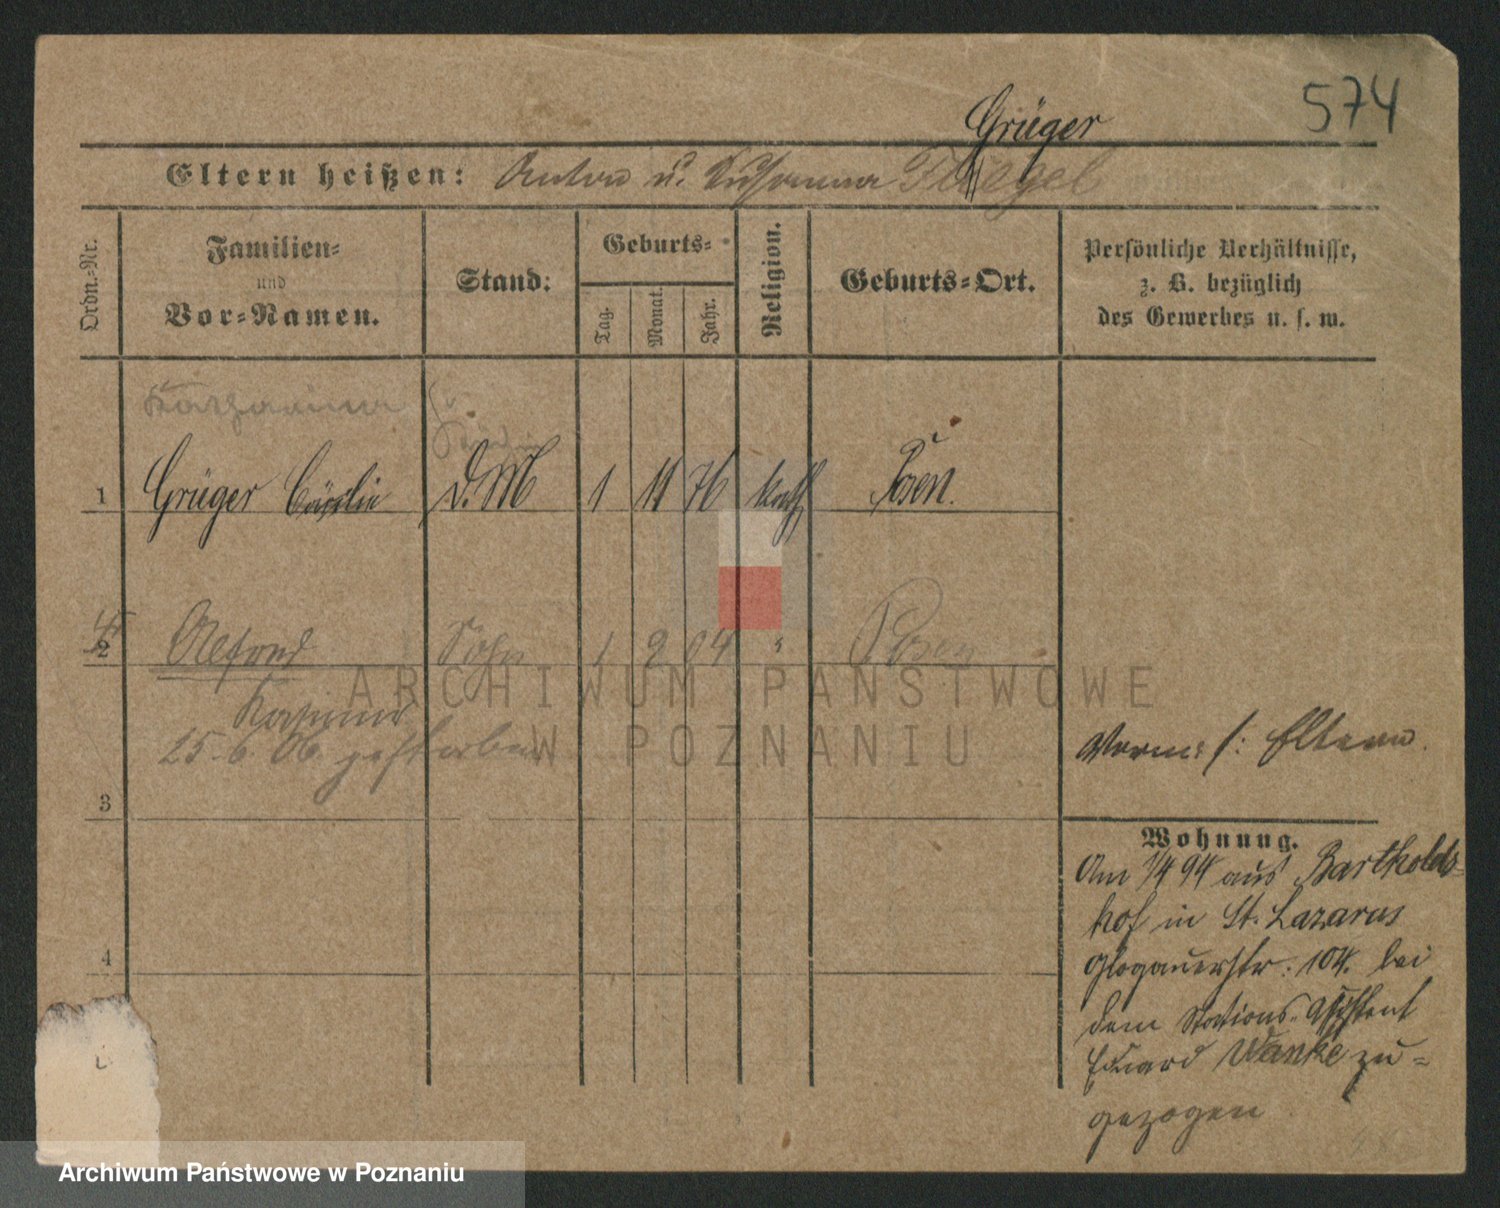 574
Grüger
Eltern heißen: Anton u. Susanna Fliegel
Ordn.-Nr.
Familien- und Vor-Namen.
Stand:
Geburts-
Tag. Monat. Jahr.
Religion.
Geburts-Ort.
Persönliche Verhältnisse, z. B. bezüglich des Gewerbes u. s. w.
Katharina
1 Grüger Cäcilie D. M 1 11 76 kath Posen.
2 Alfond Sohn 1 2 04 " Posen
Kasimir
25.6.06. gestorben
Vorm: f: Eltern.
3
Wohnung.
Am 1/4 94 aus Bartholds-
hof in St. Lazarus
Glogauerstr. 104. bei
dem Stations-Assistent
Eduard Wanke zu-
gezogen
4
ARCHIWUM PAŃSTWOWE
W POZNANIU
Archiwum Państwowe w Poznaniu